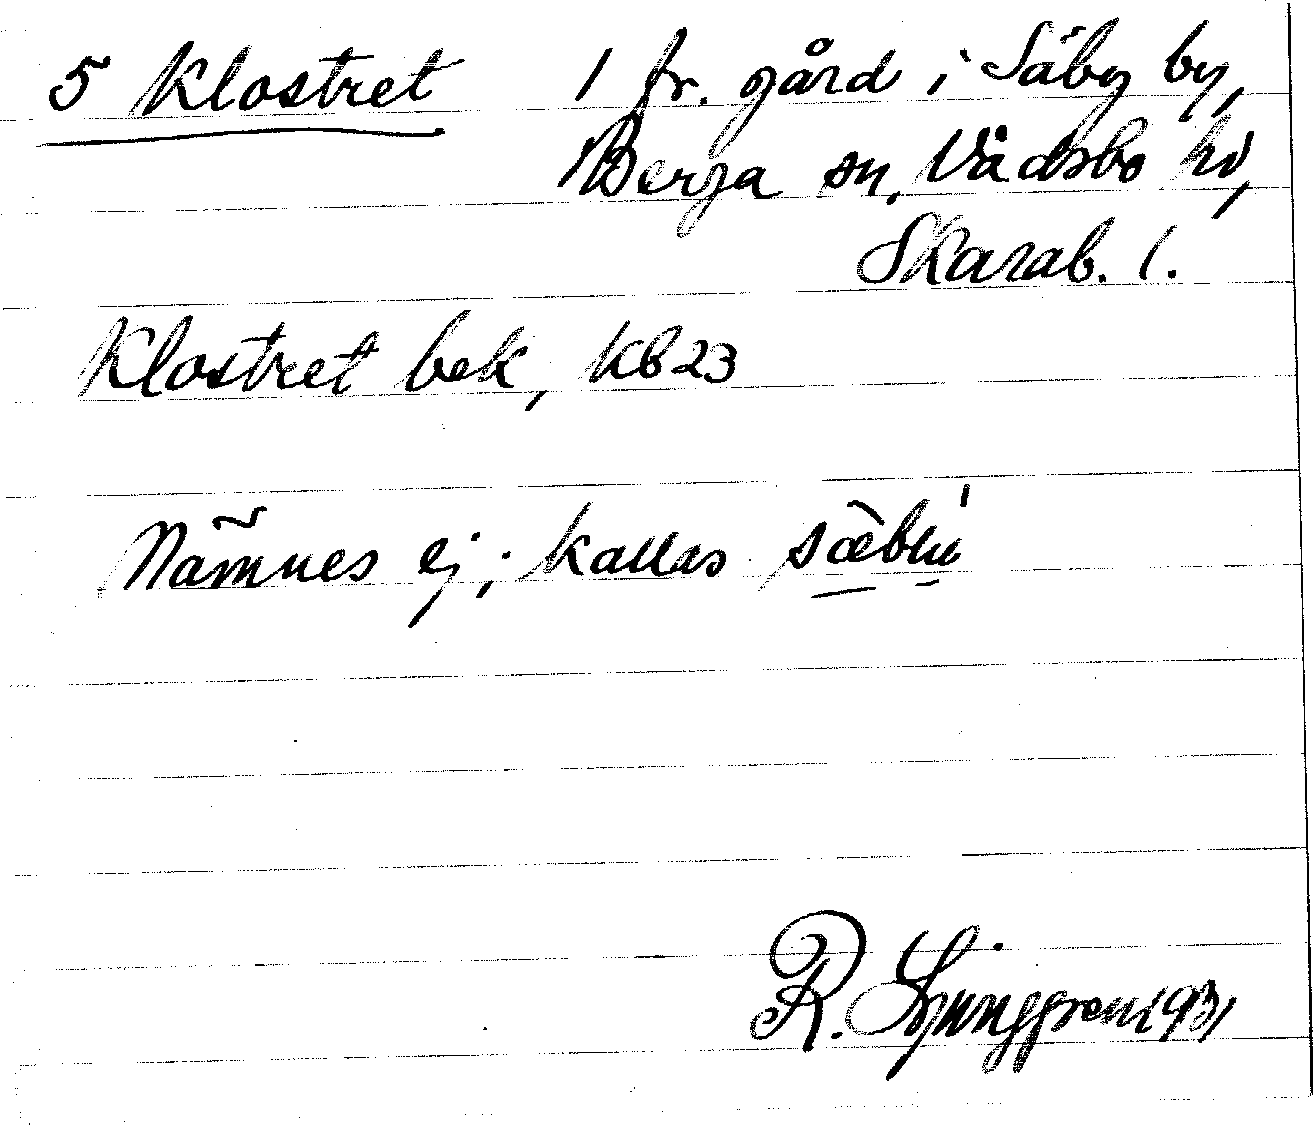 5 Klostret 1 fr. gård i Säby by,
Berga sn, Vadsbo hd,
Skarab. l.
Klostret bek, KB 23
Nämnes ej; kallas
R. Ljunggren 1931